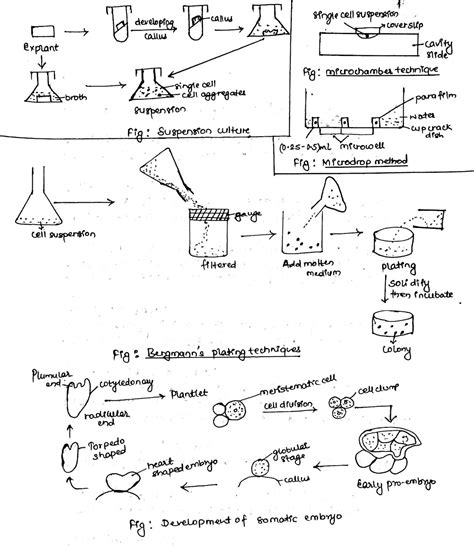 Explant
developing
callus
callus
broth
single cell
cell aggregates
suspension
Fig: Suspension culture
single cell suspension
coverslip
cavity
slide
Fig: microchamber technique
parafilm
water
cup crack
dish
(0.25-0.5)mL microwell
Fig: Microdrop method
cell suspension
gauge
filtered
Add molten
medium
plating
solidify
then incubate
colony
Fig: Bergmann's plating techniques
Plumular
end
cotyledonay
radicular
end
Plantlet
meristematic cell
cell division
cell clump
Early pro-embryo
globular
stage
callus
heart
shaped embryo
Torpedo
shaped
Fig: Development of somatic embryo